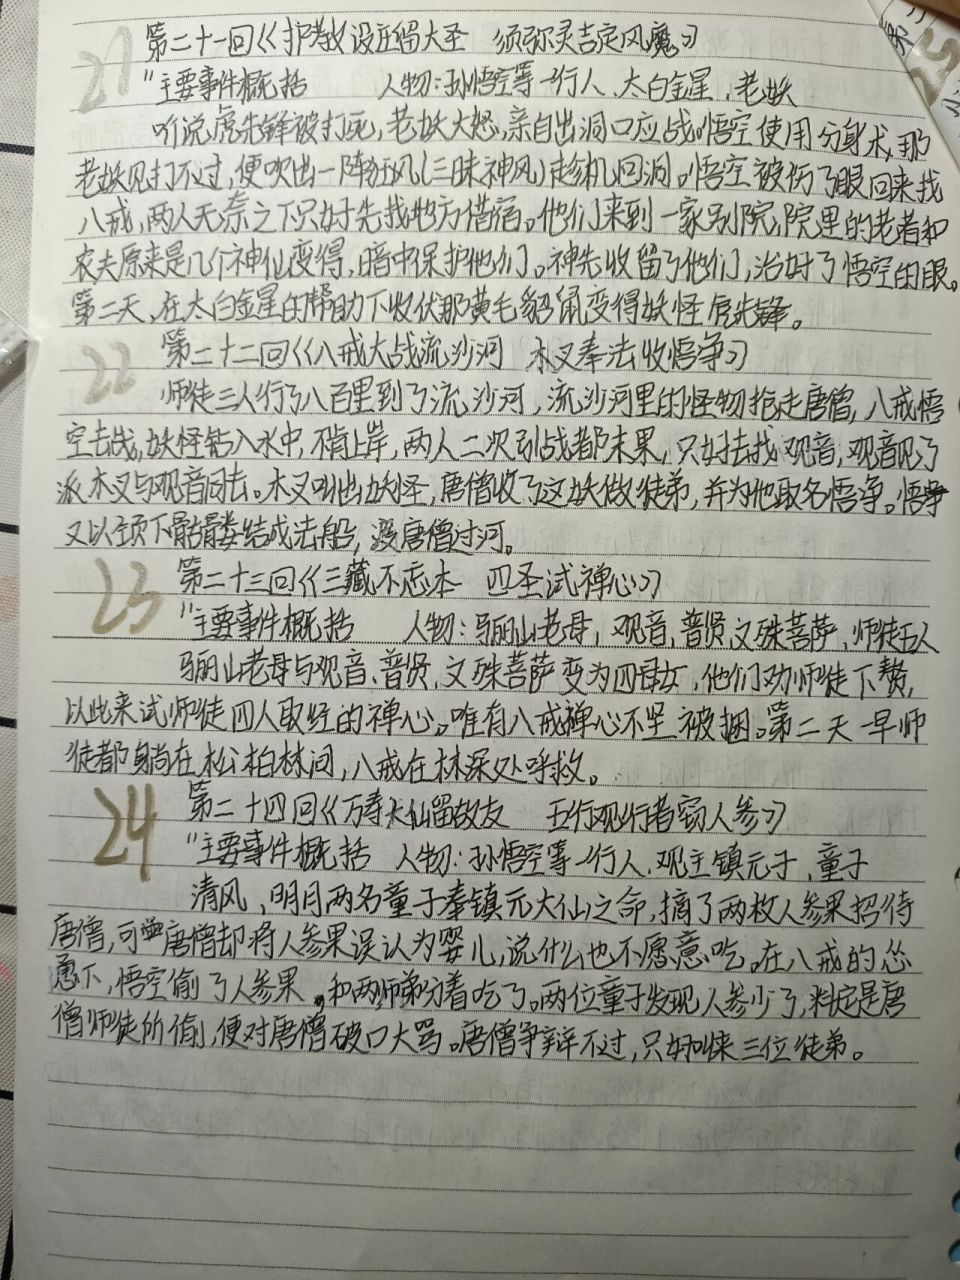 21 第二十一回《护教设庄留大圣 须弥灵吉定风魔》
"主要事件概括 人物:孙悟空等一行人、太白金星、老妖
听说虎先锋被打死,老妖大怒,亲自出洞口应战。悟空使用分身术,那
老妖见打不过,便吹出一阵狂风(三昧神风)趁机回洞。悟空被伤了眼回来找
八戒,两人无奈之下只好先找地方借宿。他们来到一家别院,院里的老者和
农夫原来是几个神仙变得,暗中保护他们。神先收留了他们,治好了悟空的眼。
第二天,在太白金星的帮助下收伏那黄毛貂鼠变得妖怪虎先锋。
22 第二十二回《八戒大战流沙河 木叉奉法收悟净》
师徒三人行了八百里到了流沙河,流沙河里的怪物抢走唐僧,八戒悟
空去战,妖怪钻入水中,不肯上岸,两人二次引战都未果,只好去找观音,观音见了
派木叉与观音同去。木叉叫出妖怪,唐僧收了这妖做徒弟,并为他取名悟净。悟净
又以颈下骷髅结成法船,渡唐僧过河。
23 第二十三回《三藏不忘本 四圣试禅心》
"主要事件概括 人物:骊山老母,观音、普贤、文殊菩萨,师徒五人
骊山老母与观音、普贤,文殊菩萨变为四母女,他们劝师徒下赘,
以此来试师徒四人取经的禅心。唯有八戒禅心不坚被捆。第二天一早师
徒都躺在松柏林间,八戒在林深处呼救。
24 第二十四回《万寿大仙留故友 五行观行者窃人参》
"主要事件概括 人物:孙悟空等一行人、观主镇元子、童子
清风,明月两名童子奉镇元大仙之命,摘了两枚人参果招待
唐僧,可唐僧却将人参果误认为婴儿,说什么也不愿意吃。在八戒的怂
恿下,悟空偷了人参果,和两师弟分着吃了。两位童子发现人参少了,料定是唐
僧师徒所偷,便对唐僧破口大骂。唐僧争辩不过,只好叫来三位徒弟。